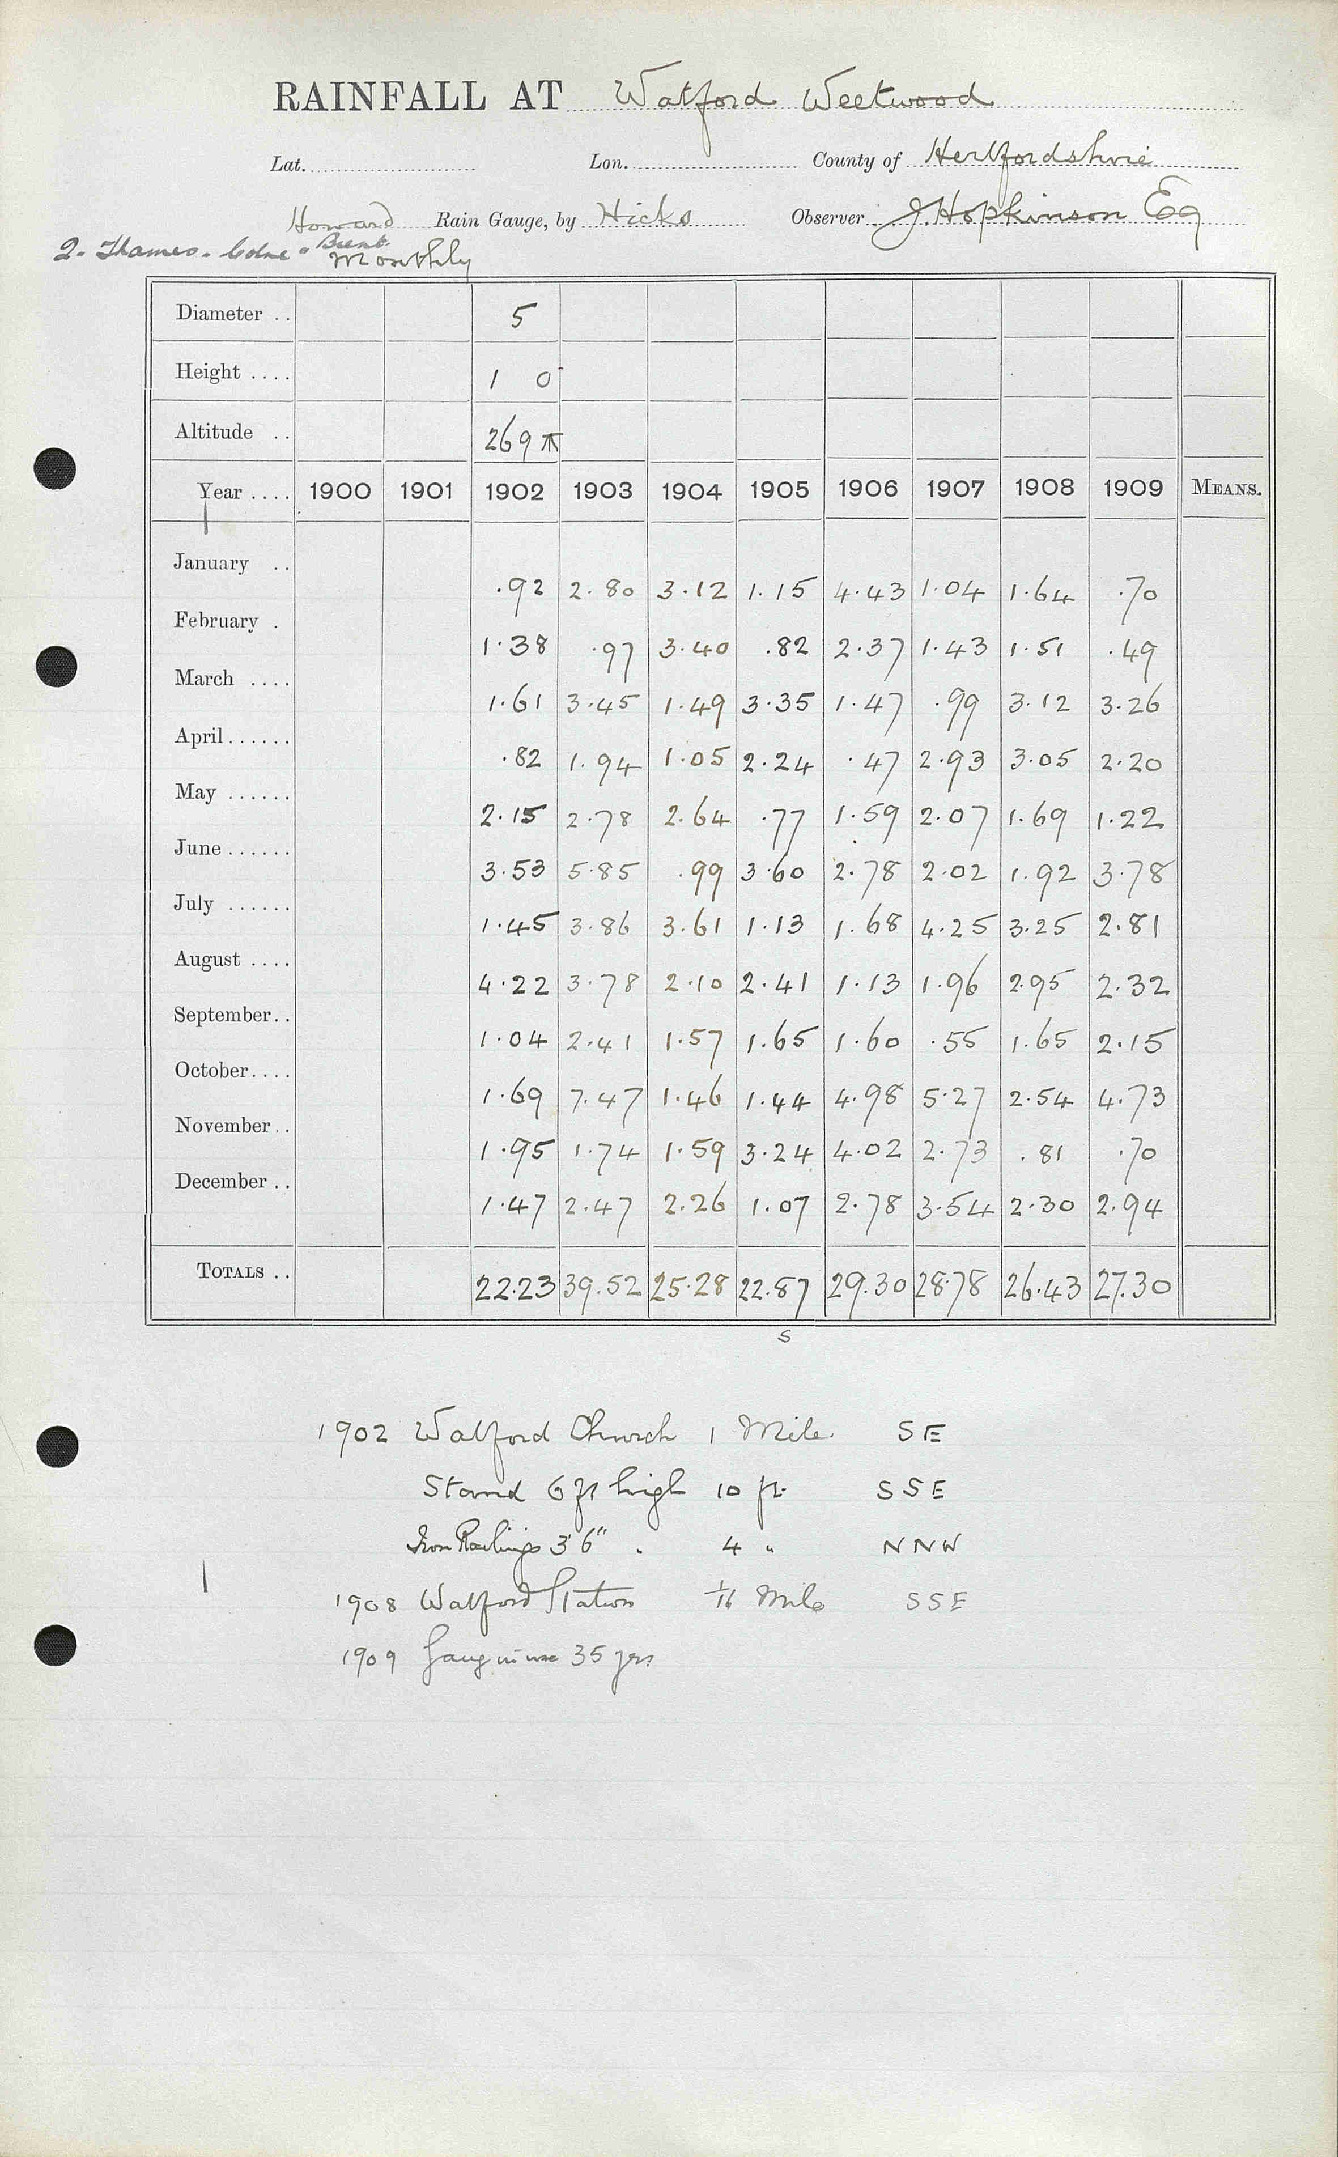 RAINFALL AT Watford Weetwood
Lat. Lon. County of Hertfordshire
Howard Rain Gauge, by Hicks Observer J. Hopkinson Esq
2. Thames. Colne & Brent.
Monthly
Diameter .. 5
Height .... 1 0
Altitude .. 269
Year .... 1900 1901 1902 1903 1904 1905 1906 1907 1908 1909 MEANS.
January .. .92 2.80 3.12 1.15 4.43 1.04 1.64 .70
February . 1.38 .97 3.40 .82 2.37 1.43 1.51 .49
March .... 1.61 3.45 1.49 3.35 1.47 .99 3.12 3.26
April...... .82 1.94 1.05 2.24 .47 2.93 3.05 2.20
May ...... 2.15 2.78 2.64 .77 1.59 2.07 1.69 1.22
June ...... 3.53 5.85 .99 3.60 2.78 2.02 1.92 3.78
July ...... 1.45 3.86 3.61 1.13 1.68 4.25 3.25 2.81
August .... 4.22 3.78 2.10 2.41 1.13 1.96 2.95 2.32
September.. 1.04 2.41 1.57 1.65 1.60 .55 1.65 2.15
October.... 1.69 7.47 1.46 1.44 4.98 5.27 2.54 4.73
November.. 1.95 1.74 1.59 3.24 4.02 2.73 .81 .70
December .. 1.47 2.47 2.26 1.07 2.78 3.54 2.30 2.94
TOTALS .. 22.23 39.52 25.28 22.87 29.30 28.78 26.43 27.30
S
1902 Watford Church 1 Mile. SE
Stand 6 ft high 10 ft. SSE
Iron Railings 3'6" . 4 " NNW
1908 Watford Station Mile SSE
1909 Gauge in use 35 yrs